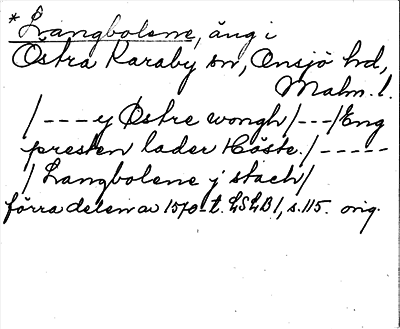 * Langbolene, äng i
Östra Karaby sn, Onsjö hd,
Malm. l.
/---y Østre wongh/---/Eng
presten lader Höste./-----
/ Langbolene j stach/
förra delen av 1570-t. LSLB1, s.115. orig.